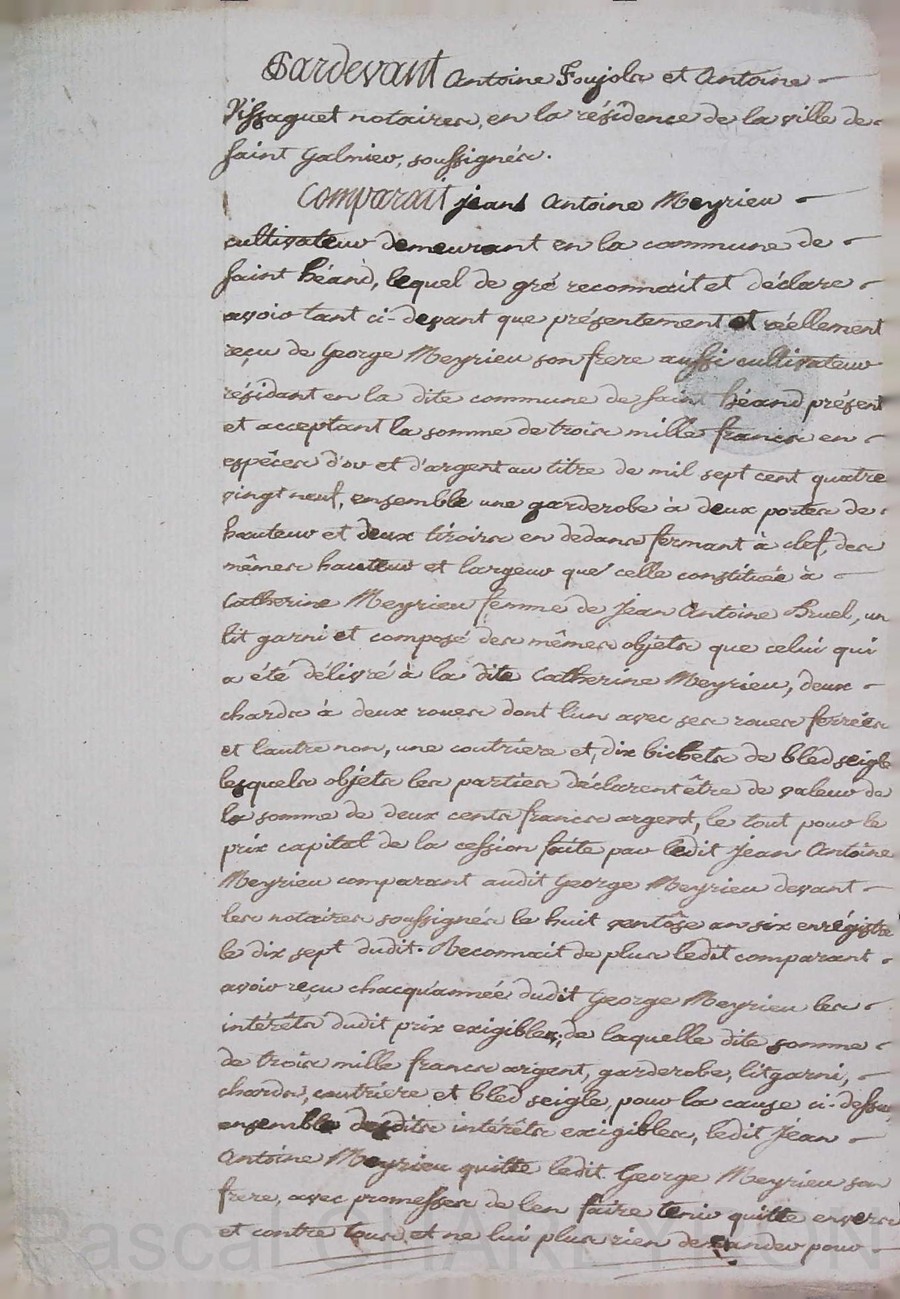 Pardevant Antoine Foujols et Antoine
Vissaguet notaires, en la résidence de la ville de
Saint Galmier, soussignés.
Comparait jean Antoine Meyrieu
cultivateur demeurant en la commune de
Saint héand, lequel de gré reconnait et déclare
avoir tant ci-devant que présentement et réellement
reçu de George Meyrieu son frere aussi cultivateur
résidant en la dite commune de Saint héand présent
et acceptant la somme de trois mille francs en
espèces d'or et d'argent au titre de mil sept cent quatre
vingt neuf, ensemble une garderobe à deux portes de
hauteur et deux tiroirs en dedans fermant à clef, des
mêmes hauteur et largeur que celle constituée à
Catherine Meyrieu femme de Jean Antoine Bruel, un
lit garni et composé des mêmes objets que celui qui
a été délivré à la dite Catherine Meyrieu, deux
chards à deux roues dont l'un avec ses roues ferrées
et lautre non, une coutriere et, dix bichets de bled seigle
lesquels objets les parties déclarent être de valeur de
la somme de deux cents francs argent, le tout pour le
prix capital de la cession faite par ledit Jean Antoine
Meyrieu comparant audit George Meyrieu devant
les notaires soussignés le huit ventôse an six enrégistré
le dix sept dudit. Reconnait de plus ledit comparant
avoir reçu chacqu'année dudit George Meyrieu les
intérêts dudit prix exigibles; de laquelle dite somme
de trois mille francs argent, garderobe, lit garni,
chards, coutriere et bled seigle, pour la cause ci-dessus
ensemble desdits intérêts exigibles, ledit Jean
Antoine Meyrieu quitte ledit George Meyrieu son
frere, avec promesses de len faire tenir quitte envers
et contre tous, et ne lui plus rien demander pour
Pascal CHAREYRON